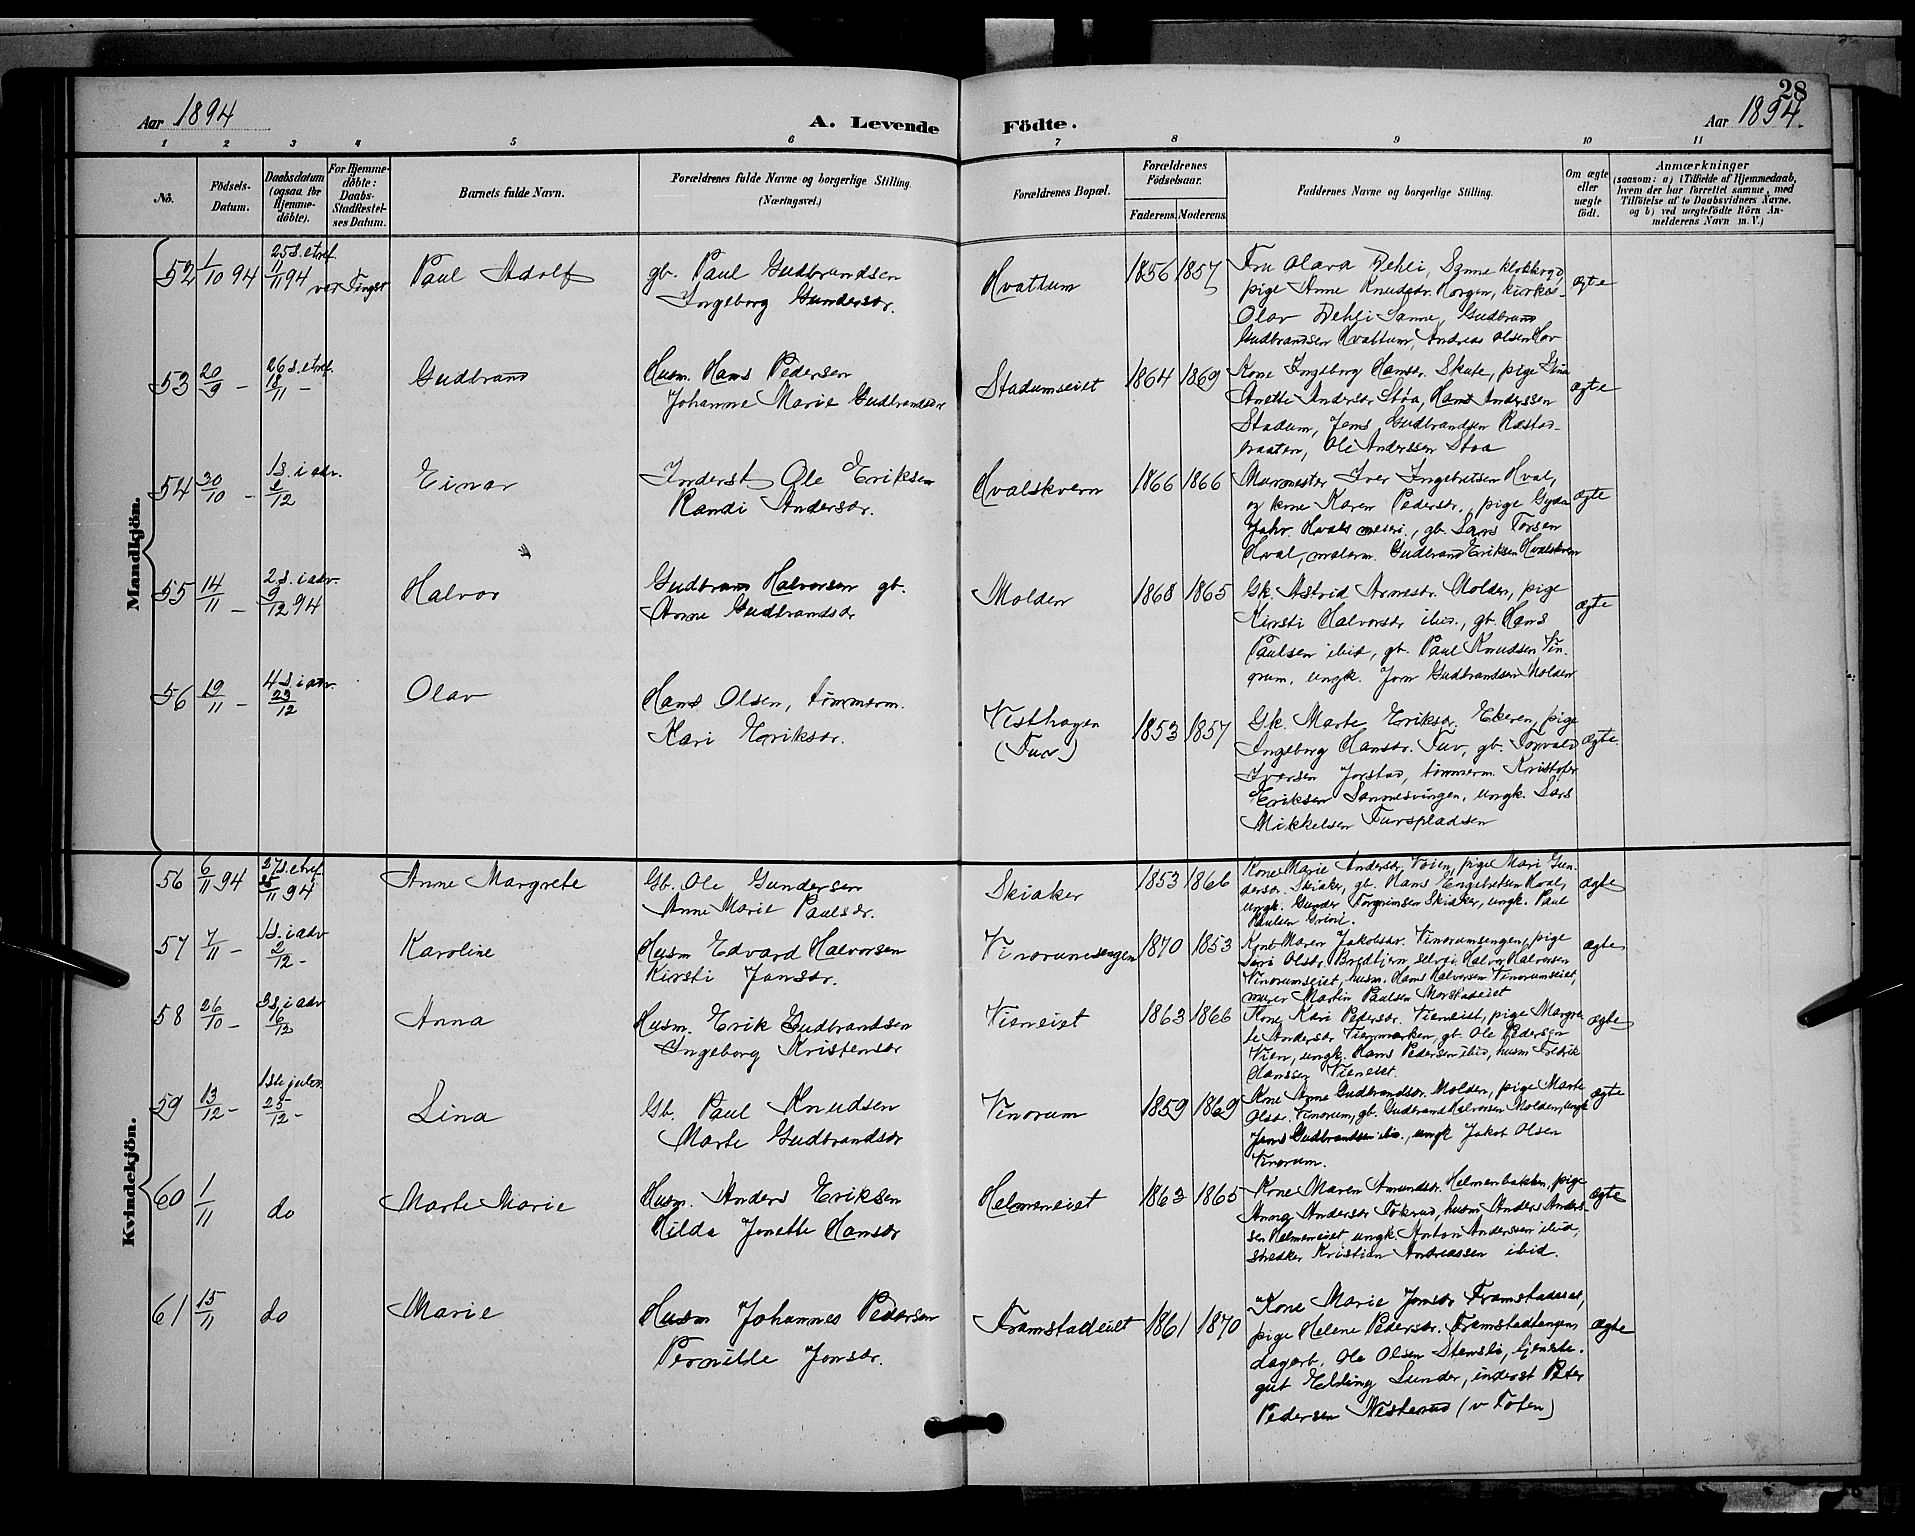 28
Aar 1894
A. Levende
Födte.
Aar 1894.
1 2 3 4 5 6 7 8 9 10 11
No.
Födsels-
Datum.
Daabsdatum
(ogsaa for
Hjemme-
döbte).
For Hjemme-
döbte:
Daabs-
Stadfestel-
ses Datum.
Barnets fulde Navn.
Forældrenes fulde Navne og borgerlige Stilling.
(Næringsvei.)
Forældrenes Bopæl.
Forældrenes
Födselsaar.
Faderens. Moderens.
Faddernes Navne og borgerlige Stilling.
Om ægte
eller
uægte
födt.
Anmærkninger
(saasom: a) i Tilfælde af Hjemmedaab,
hvem der har forrettet samme, med
Tilföielse af to Daabsvidners Navne,
og b) ved uægtefödte Börn An-
melderens Navn m. V.)
Mandkjön.
52 1/10 94
25 s. e. tref.
11/11 94
Paul Adolf
gb. Paul Gudbrandsen
Ingeborg Gundersdr.
Hvattum
1856 1857
Fru Olava Dehli, Sanne
pige Anne Knudsdr. Horgen,
Olav Dehli Sanne, Gudbrand
Gudbrandsen Hvattum, Andreas Olsen Hov
ægte
53 20/9 –
26 s. e. tref.
18/11 –
Gudbrand
Husm. Hans Pedersen
Johanne Marie Gudbrandsdr
Stadumseiet
1864 1869
Kone Ingeborg Hansdr. Skute, pige
Anette Andersdr Stoa, Hans Anderssen
Stadum, Jens Gudbrandsen
Ole Anderssen Stoa
ægte
54 30/10 –
1 s. i adv.
2/12
Einar
Inderst Ole Eriksen
Randi Andersdr.
Hvalskvern
1866 1866
Murmester Iver Ingebretsen Hval,
og kone Karen Pedersdr., pige Gyda
Jahr. Hvals meieri, gb. Lars Torsen
Hval, malerm. Gudbrand Eriksen Hvalskvern
ægte
55 14/11 –
2 s. i adv.
9/12 94
Halvor
Gudbrand Halvorsen gb.
Anne Gudbrandsdr
Molden
1868 1865
Gk. Astrid Arnesdr. Molden, pige
Kirsti Halvorsdr ibid., gb. Hans
Paulsen ibid, gb. Paul Knudsen Vin-
orum, ungk. Jon Gudbrandsen Molden
ægte
56 19/11 –
4 s. i adv.
23/12
Olav
Hans Olsen, tømmerm.
Kari Eriksdr.
Visthagen
(Tuv)
1853 1857
Gk. Marte Eriksdr. Ekeren, pige
Ingeborg Hansdr. Tuv, gb. Torvald
Iversen Jorstad, tømmerm. Kristofer
Eriksen Sannesvingen, ungk. Lars
Mikkelsen Tuvspladsen
ægte.
Kvindekjön.
56 6/11 94
27 s. e. tref.
25/11 94
Anne Margrete
Gb. Ole Gundersen
Anne Marie Paulsdr.
Skiaker
1853 1866
Kone Marie Andersdr. Vøien, pige Mari Gun-
dersdr. Skiaker, gb. Hans Engebretsen Hval,
ungk. Gunder Torgrimsen Skiaker, ungk. Paul
Paulsen Grini.
ægte
57 7/11 –
1 s. i adv
2/12 –
Karoline
Husm Edvard Halvorsen
Kirsti Jansdr.
Vinorumsengen
1870 1853
Kone Maren Jakobsdr. Vinorumsengen, pige
Siri Olsdr. Bredbjern, selvei. Halvor Halvorsen
Vinorumseiet, husm. Hans Halvorsen Vinorumseiet,
murer Martin Paulsen Morstadeiet
ægte
58 26/10 –
3 s. i adv
16/12
Anna
Husm. Erik Gudbrandsen
Ingeborg Kristensdr
Vieneiet
1863 1866
Kone Kari Pedersdr. Vieneiet, pige Margre-
te Andersdr Vienmarken, gb. Ole Pedersen
Vien, ungk. Hans Pedersen ibid, husm Fredrik
Hanssen Vieneiet.
ægte
59 13/12 –
1ste juled
25/12 –
Lina
Gb. Paul Knudsen
Marte Gudbrandsdr
Vinorum
1859 1869
Kone Anne Gudbrandsdr. Molden, pige Marte
Olsdr. Vinorum, gb. Gudbrand Halvorsen Molden, ungk
Jens Gudbrandsen ibid., ungk Jakob Olsen
Vinorum.
ægte
60 1/11
do
Marte Marie
Husm. Anders Eriksen
Hilda Jonette Hansdr
Helmeneiet
1863 1865
Kone Maren Amundsdr. Helmenbakken, pige
Anna Andersdr Tokerud, husm Anders Anders-
sen Helmeneiet, ungk. Anton Anderssen ibid,
snedker Kristian Andreassen ibid.
ægte
61 15/11
do
Marie
Husm Johannes Pedersen
Pernille Jonsdr.
Framstadeiet
1861 1870
Kone Marie Jonsdr Framstadeiet,
pige Helene Pedersdr. Framstadengen
dagarb. Ole Olsen Stensli, tjeneste-
gut Elling Lunder, inderst Peter
Pedersen Nisterud (v Toten)
ægte